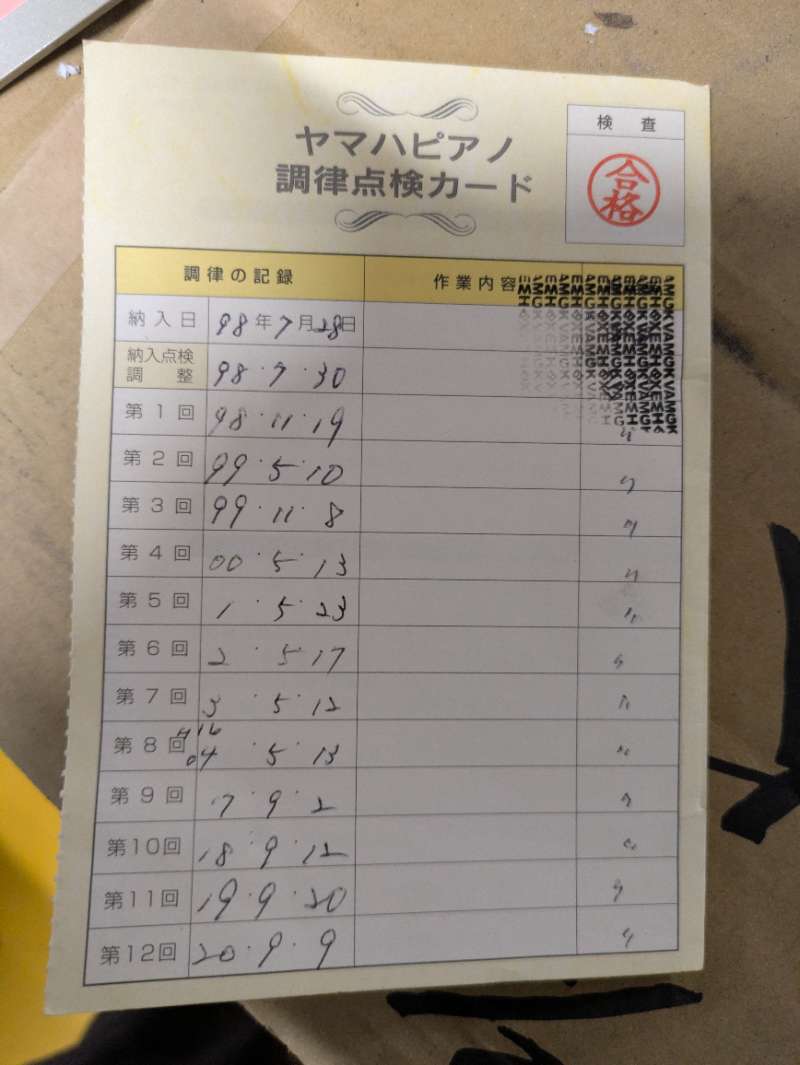 ヤマハピアノ
調律点検カード
検 査
合格
調律の記録 作業内容
納入日 98年7月28日
納入点検調整 98・7・30
第1回 98・11・19
第2回 99・5・10
第3回 99・11・8
第4回 00・5・13
第5回 1・5・23
第6回 2・5・17
第7回 3 5・12
第8回 04・5・13
第9回 17・9・2
第10回 18・9・12
第11回 19・9・20
第12回 20・9・9